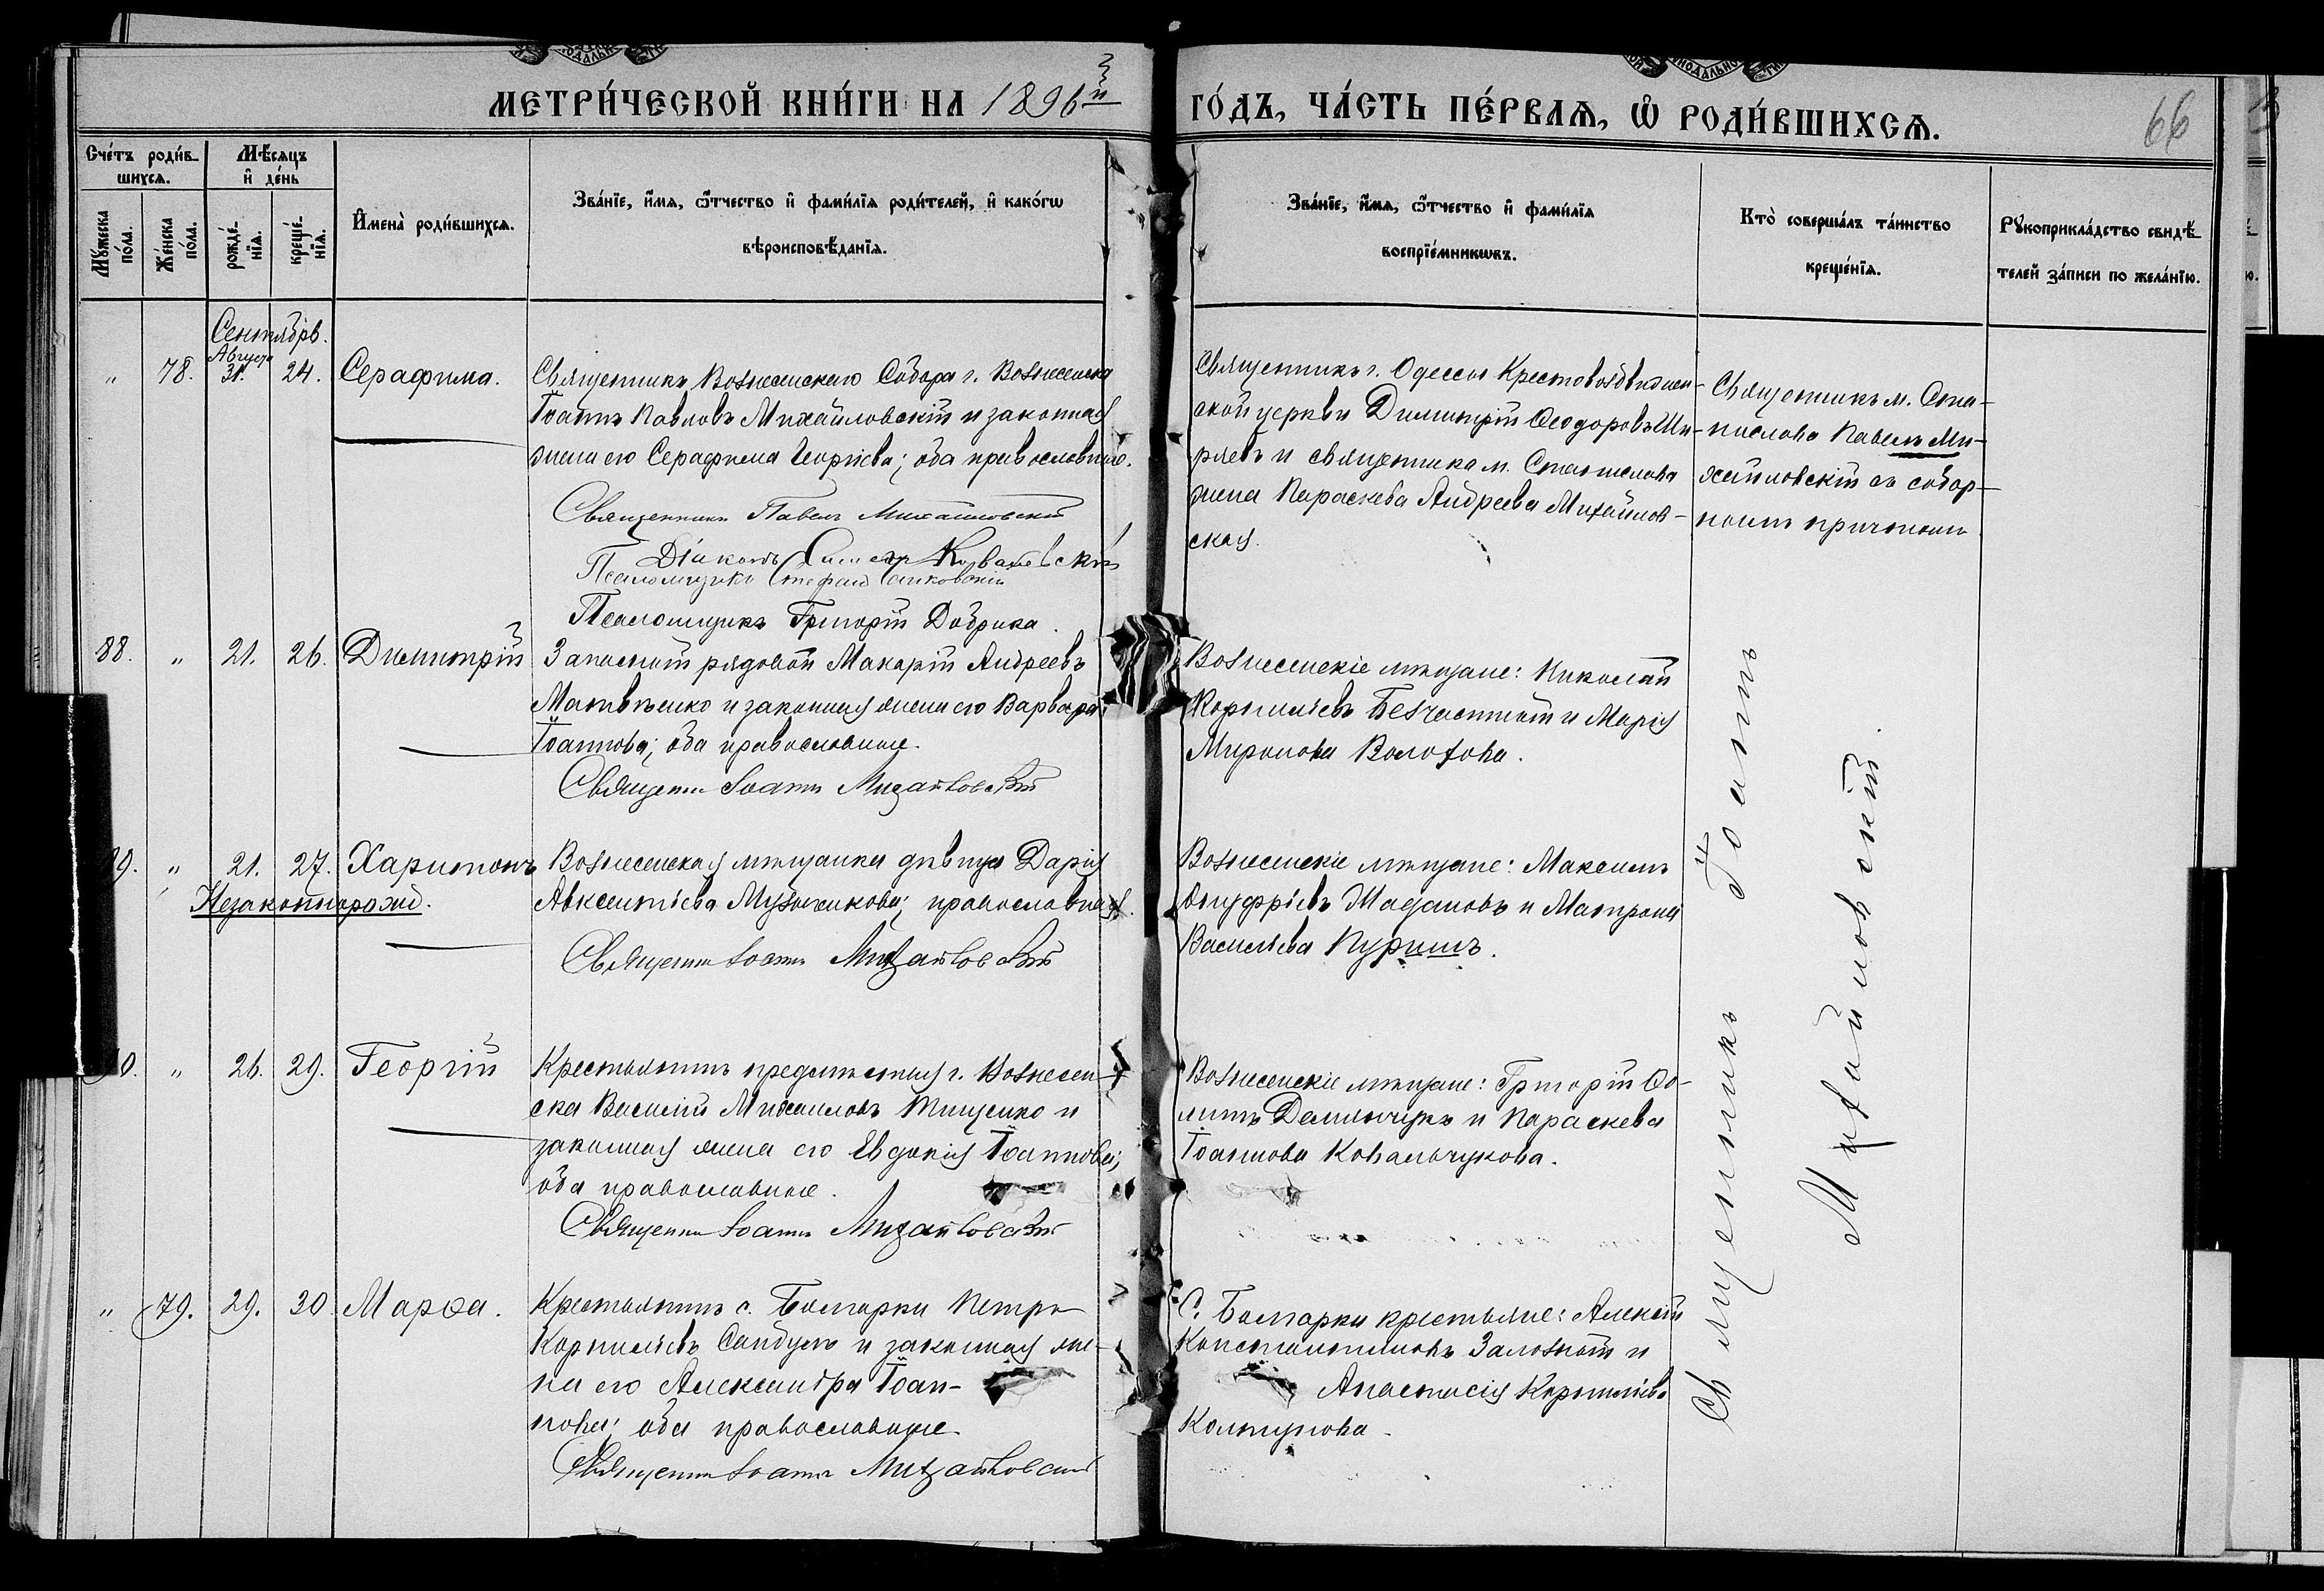 МЕТРИ́ЧЕСКОЙ КНИ́ГИ НА 1896й
ГО́ДЪ, ЧА́СТЬ ПЕ́РВАѦ, Ѡ҆ РОДИ́ВШИХСѦ.
66
Сче́тъ роди́в-
шихсѧ.
Мѣ́сѧцъ
и҆ де́нь
Мꙋ́жеска
по́ла.
Же́нска
по́ла.
рожде́-
нїѧ.
креще́-
нїѧ.
И҆мена̀ роди́вшихсѧ.
Зва́нїе, и҆́мѧ, ѻ҆́тчество и҆ фами́лїѧ роди́телей, и҆ како́гѡ
вѣроисповѣ́данїѧ.
Зва́нїе, и҆́мѧ, ѻ҆́тчество и҆ фами́лїѧ
воспрїе́мникѡвъ.
Кто̀ соверша́лъ та́инство
креще́нїѧ.
Рꙋкоприкла́дство свидѣ́-
телей за́писи по жела́нїю.
Сентябрь.
Августа
" 78. 31. 24. Серафима.
Священникъ Вознесенскаго Собора г. Вознесенска
Іоаннъ Павловъ Михайловскій и законная
жена его Серафима Георгіева; оба православные.
Священникъ Павелъ Михайловскій
Діаконъ
Псаломщикъ Стефанъ
Псаломщикъ Григорій Добрика.
Священникъ г. Одессы Крестовоздвижен-
ской церкви Димитрій Ѳеодоровъ Ши-
ряевъ и священника м. Станислава
жена Параскева Андреева Михайлов-
ская.
Священникъ м. Ста-
нислава Павелъ Ми-
хайловскій съ собор-
нымъ причтомъ
88. " 21. 26. Димитрій
Запасный рядовой Макарій Андреевъ
Матвѣенко и законная жена его Варвара
Іоаннова; оба православные.
Священникъ Іоаннъ Михайловскій
Вознесенскіе мѣщане: Николай
Корнилiевъ Безчастный и Марія
Миронова Волохова.
9. " 21. 27. Харитонъ
Незаконнорожд.
Вознесенская мѣщанка дѣвица Дарія
Авксентіева Музыченкова; православная.
Священникъ Іоаннъ Михайловскій
Вознесенскіе мѣщане: Максимъ
Онуфріевъ Жадановъ и Матрона
Василіева Пуришъ.
0. " 26. 29. Георгій
Крестьянинъ предмѣстья г. Вознесен-
ска Василій Михаиловъ Тищенко и
законная жена его Евдокія Іоаннова;
оба православные.
Священникъ Іоаннъ Михайловскій
Вознесенскіе мѣщане: Григорій Ѳо-
минъ Демянчукъ и Параскева
Іоаннова Ковальчукова.
" 79. 29. 30 Марѳа.
Крестьянинъ с. Болгарки Петръ
Корниліевъ Сандулъ и законная же-
на его Александра Іоан-
нова; оба православные
Священникъ Іоаннъ Михайловскій
С. Болгарки крестьяне: Алексій
Константиновъ Заложный и
Анастасія Корниліева
Колтунова.
Священникъ Іоаннъ
Михайловскій.